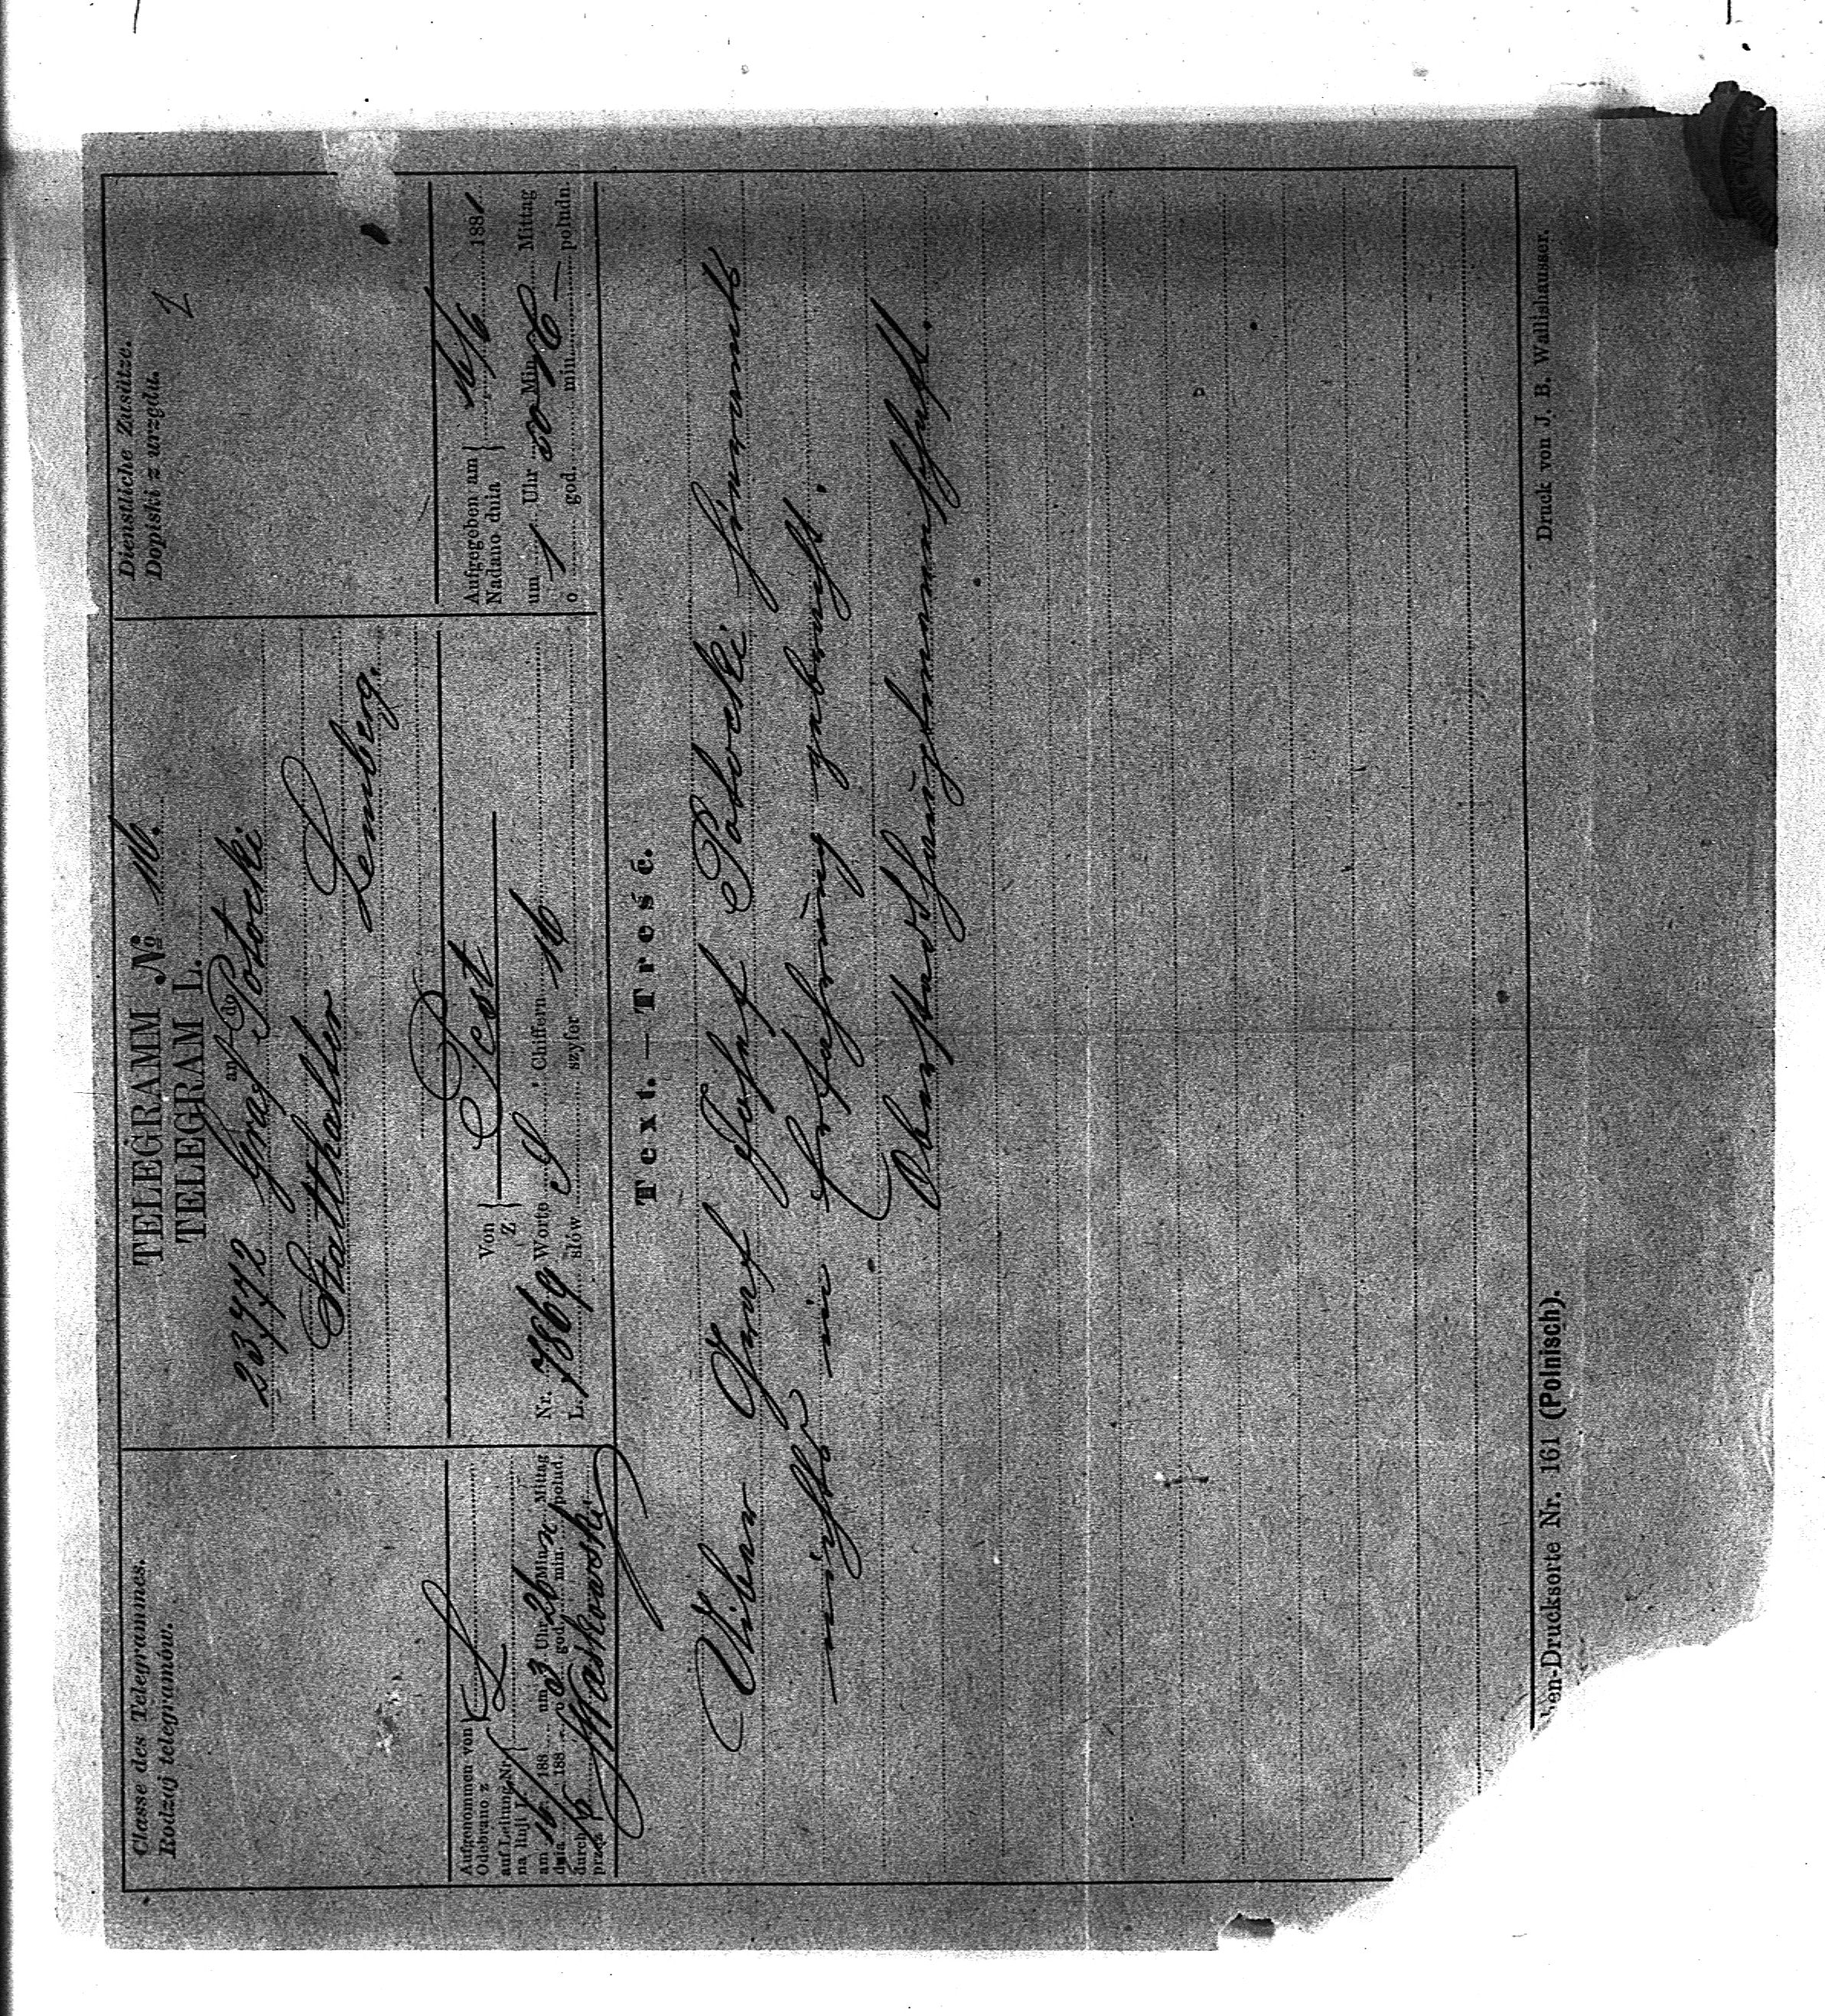 Classe des Telegrammes.
Rodzaj telegramów.
TELEGRAMM № 116.
TELEGRAM L.
an
23772 Graf Potocki
Statthalter
Lemberg.
Dienstliche Zusätze.
Dopiski z urzędu.
1
Aufgenommen von
Odebrano z
auf Leitung Nr.
na linji L.
am 16/ 188 um 3 Uhr 26 Min. Mittag
dnia 6 188 o god. min. połud.
durch
przez
Von
Z
Pest
Nr. 7869 Worte Chiffern 16
L. słów szyfer
Aufgegeben am
Nadano dnia
16/6 1881
um 1 Uhr Min. Mittag
o god. min. połudn.
Text. — Treść.
Über Graf Josef Potocki hieramts
nichts in Erfahrung gebracht.
Oberstadthauptmannschaft.
en-Drucksorte Nr. 161 (Polnisch).
Druck von J. B. Wallishausser.